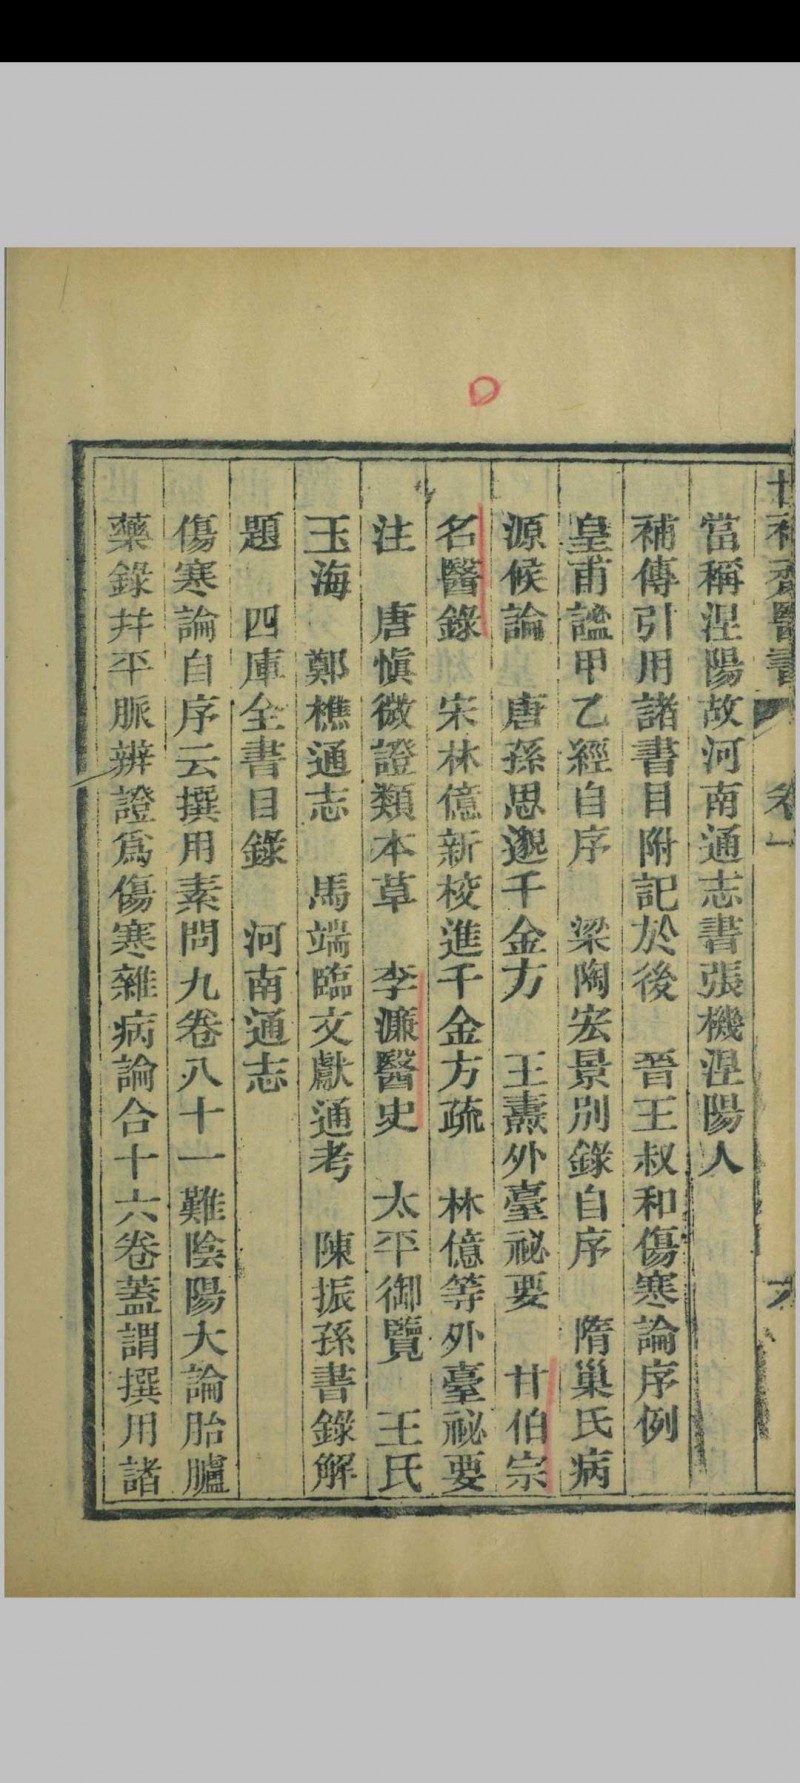 世補齋醫書 卷一 六
當稱涅陽故河南通志書張機涅陽人
補傳引用諸書目附記於後 晉王叔和傷寒論序例
皇甫謐甲乙經自序 梁陶宏景別錄自序 隋巢氏病
源候論 唐孫思邈千金方 王燾外臺祕要 甘伯宗
名醫錄 宋林億新校進千金方疏 林億等外臺祕要
注 唐慎微證類本草 李濂醫史 太平御覽 王氏
玉海 鄭樵通志 馬端臨文獻通考 陳振孫書錄解
題 四庫全書目錄 河南通志
傷寒論自序云撰用素問九卷八十一難陰陽大論胎臚
藥錄并平脈辨證爲傷寒雜病論合十六卷蓋謂撰用諸